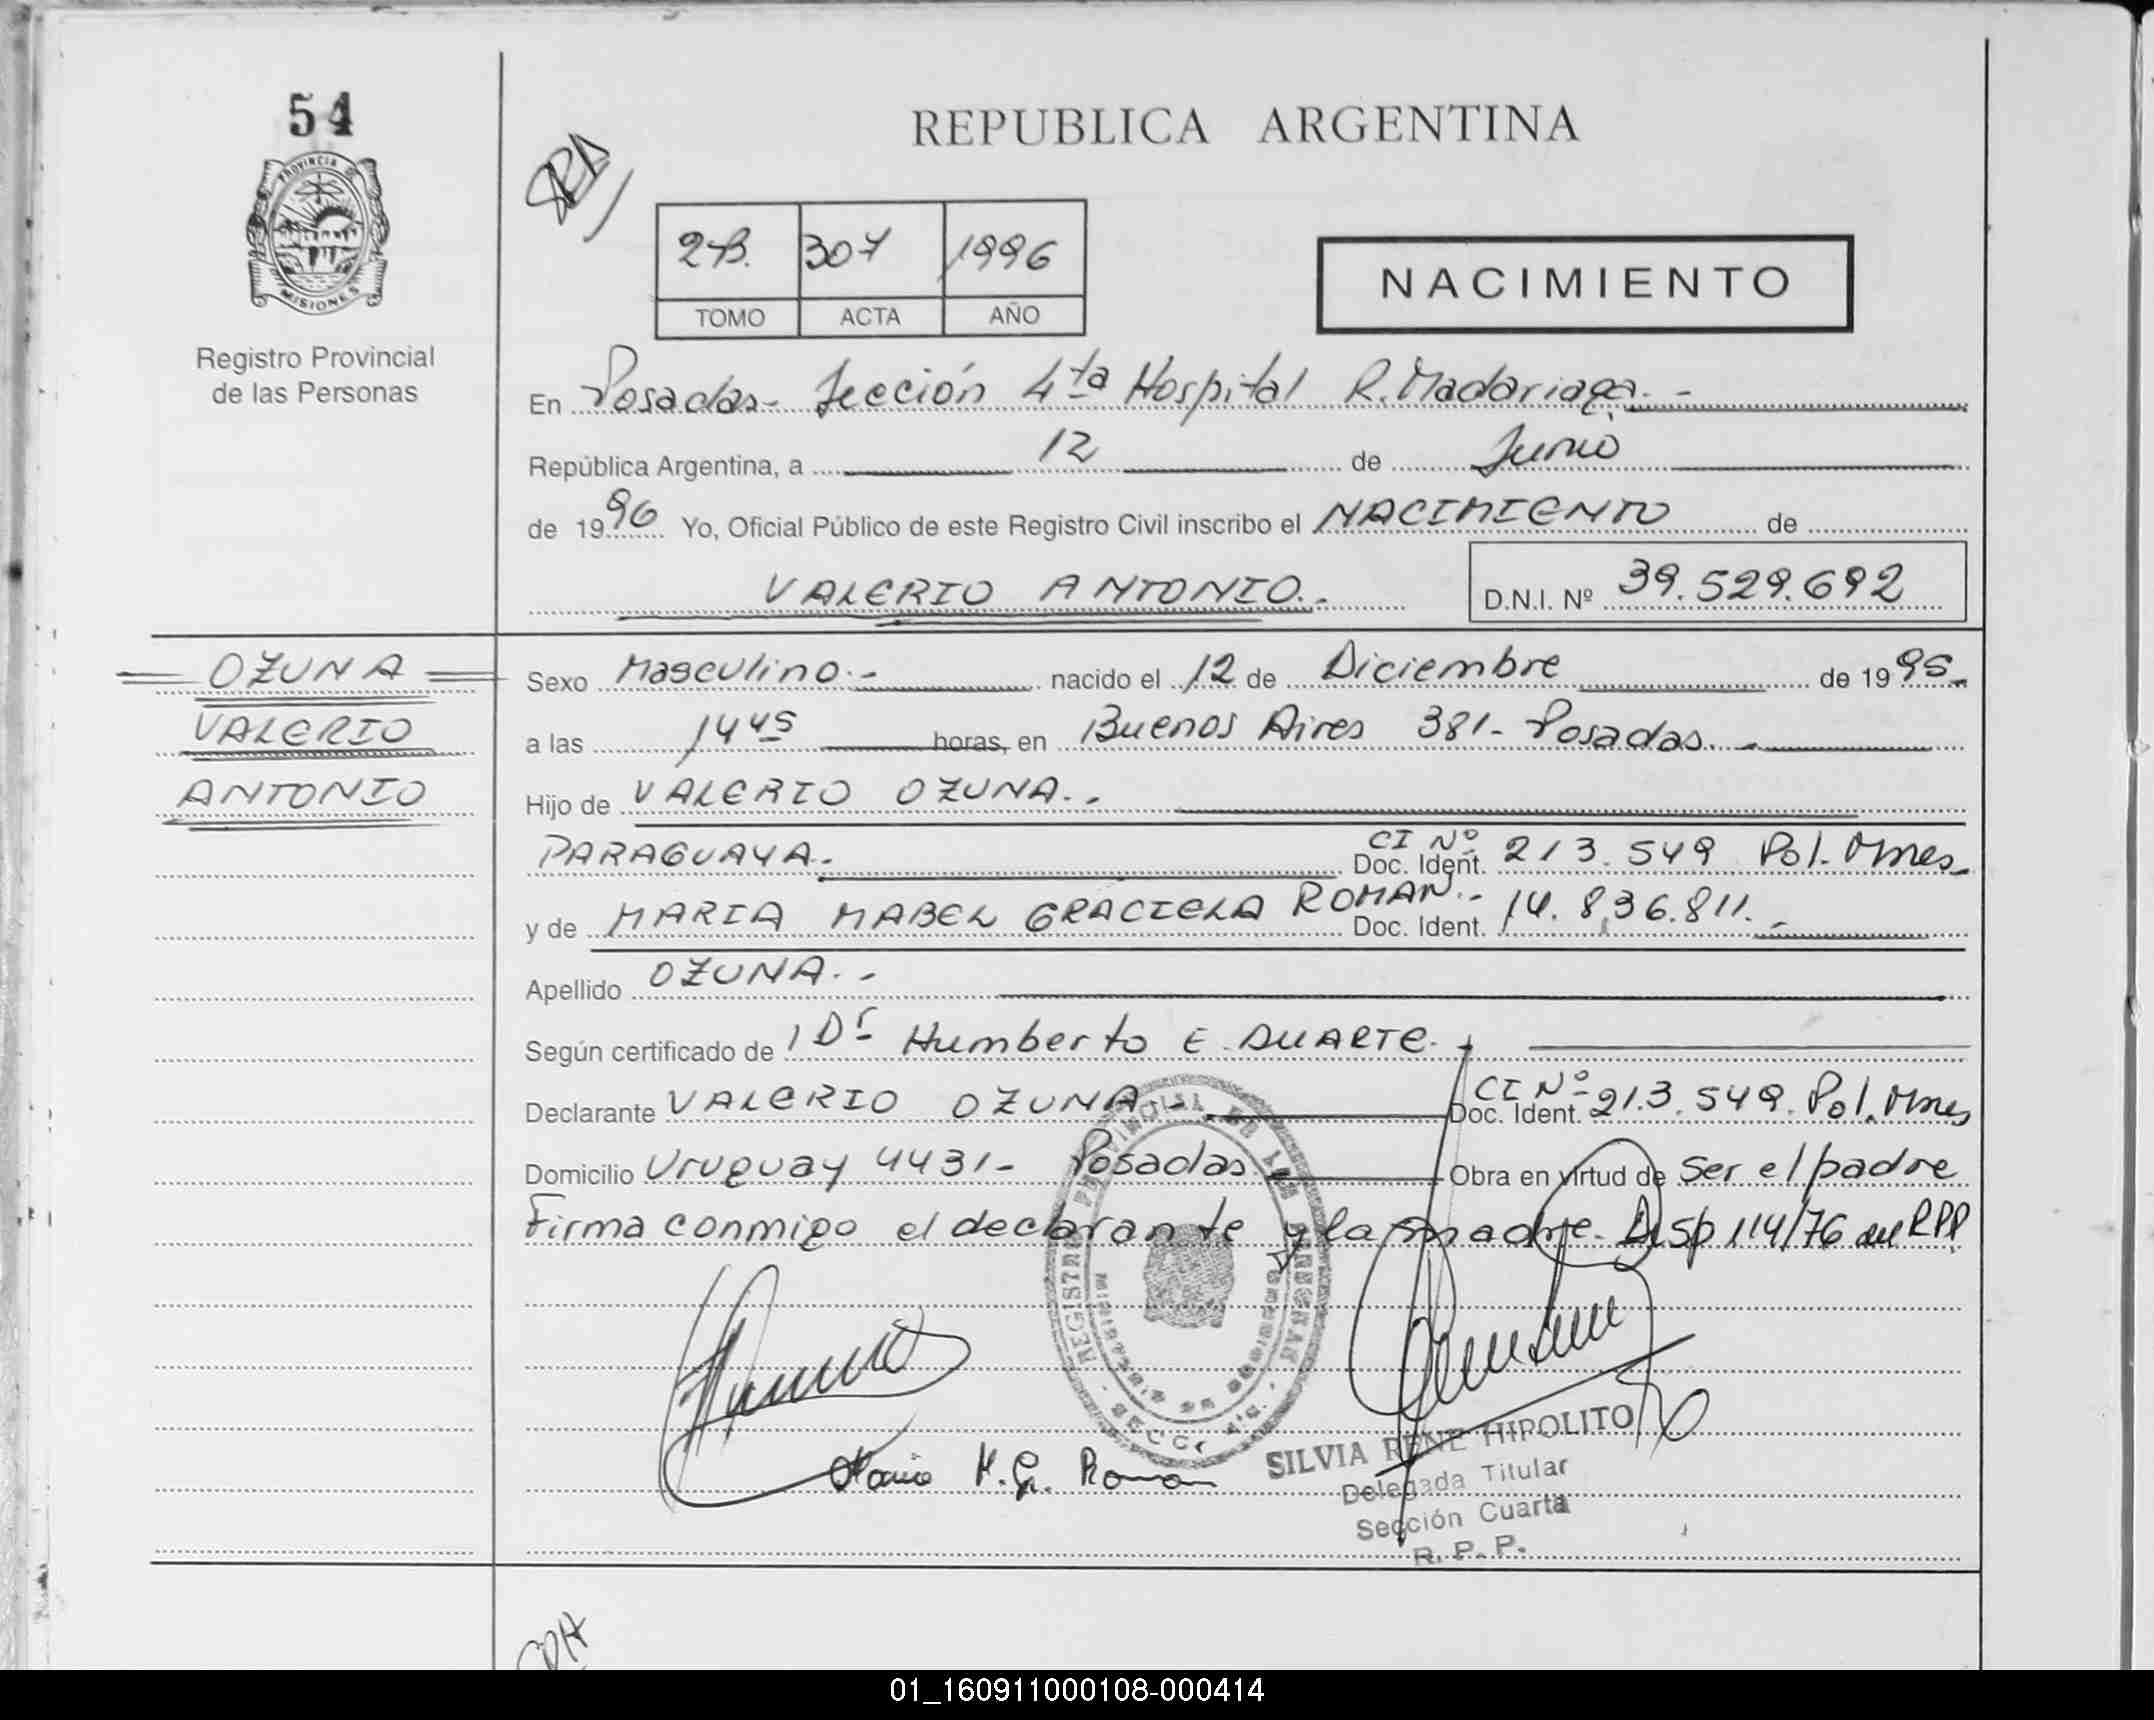 54
PROVINCIA DE
MISIONES
Registro Provincial
de las Personas
REPUBLICA ARGENTINA
2-B. 307 1996
TOMO ACTA AÑO
NACIMIENTO
En Posadas- Sección 4ta Hospital R. Madariaga.-
República Argentina, a 12 de Junio
de 1996 Yo, Oficial Público de este Registro Civil inscribo el NACIMIENTO de
VALERIO ANTONIO.-
D.N.I. Nº 39.529.692
OZUNA
VALERIO
ANTONIO
Sexo Masculino.- nacido el 12 de Diciembre de 1995.
a las 14 45 horas, en Buenos Aires 381- Posadas.-
Hijo de VALERIO OZUNA.-
PARAGUAYA.- CI Nº Doc. Ident. 213.549 Pol. Mnes.
y de MARIA MABEL GRACIELA ROMAN.- Doc. Ident. 14.836.811.-
Apellido OZUNA.-
Según certificado de 1 Dr Humberto E. DUARTE.
Declarante VALERIO OZUNA.- CI Nº Doc. Ident. 213.549. Pol. Mnes
Domicilio Uruguay 4431- Posadas.- Obra en virtud de ser el padre
Firma conmigo el declarante y la madre. Disp 114/76 del RPP
REGISTRO PROVINCIAL DE LAS PERSONAS
MINISTERIO DE GOBIERNO
SECC. 4ta.
Maria M. G. Roman
SILVIA RENE HIPOLITO
Delegada Titular
Sección Cuarta
R. P. P.
01_160911000108-000414